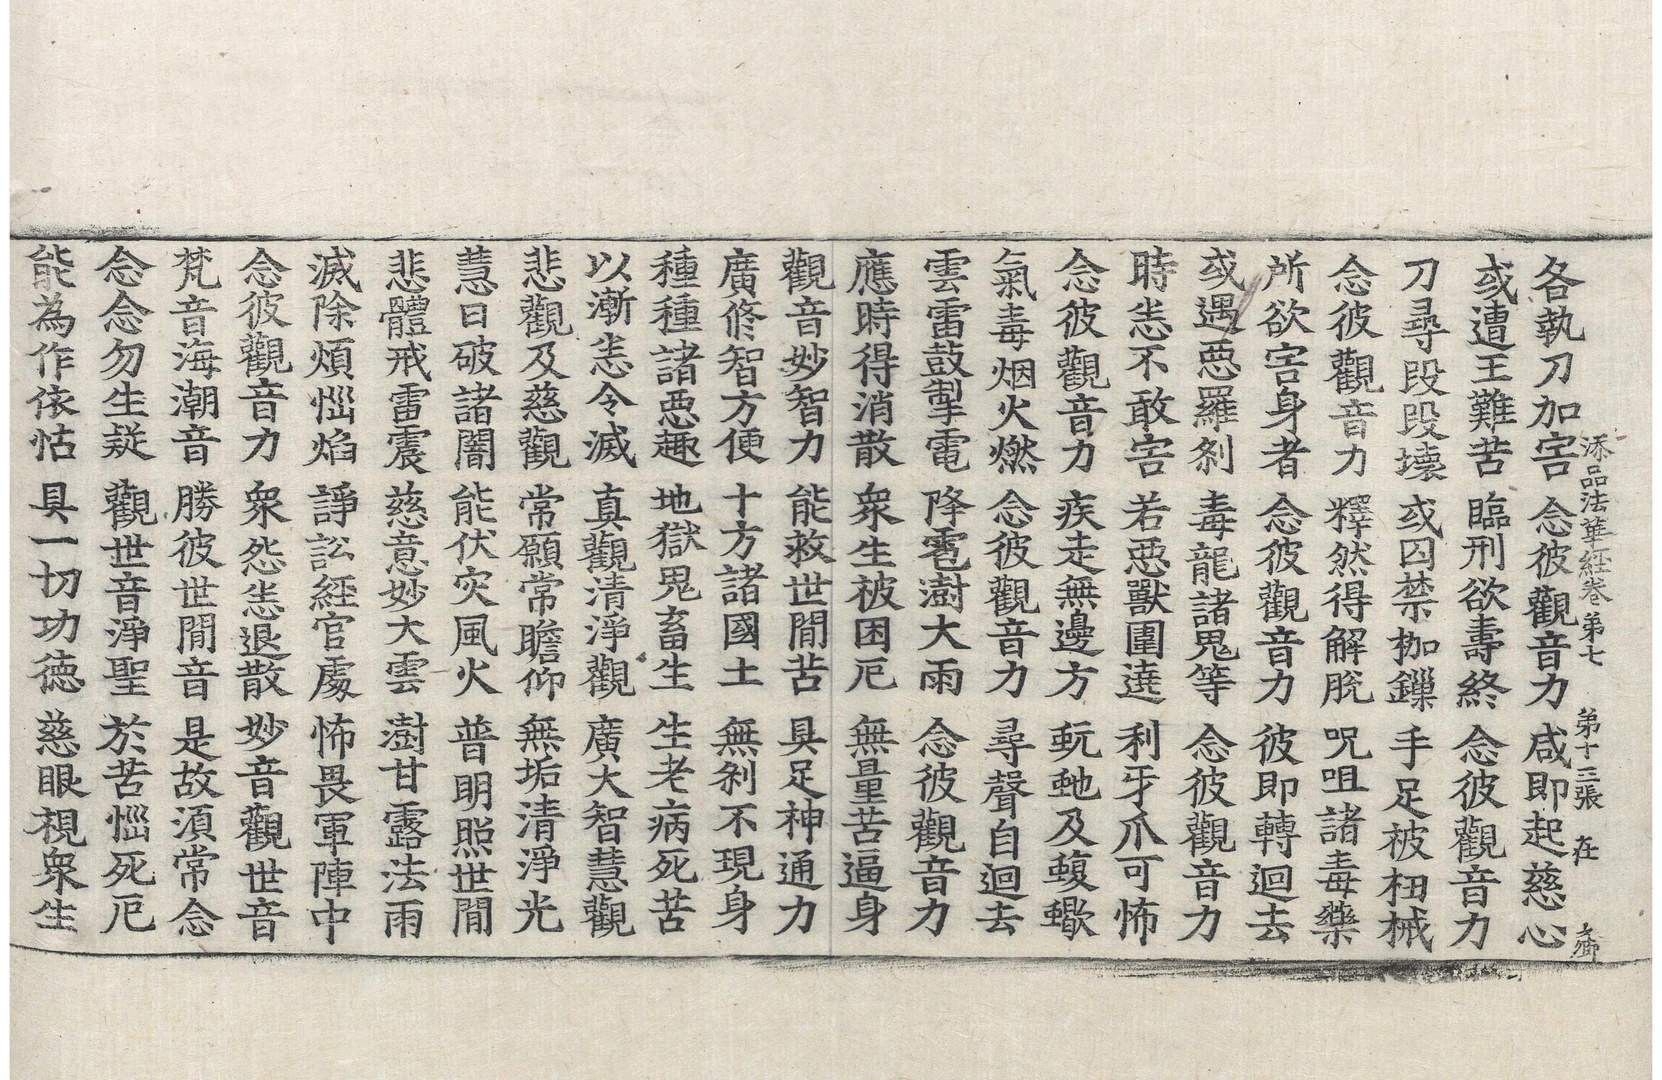 添品法華經卷第七 第十三張 在
各執刀加害 念彼觀音力 咸即起慈心
或遭王難苦 臨刑欲壽終 念彼觀音力
刀尋段段壞 或囚禁枷鏁 手足被杻械
念彼觀音力 釋然得解脫 呪咀諸毒藥
所欲害身者 念彼觀音力 彼即轉迴去
或遇惡羅剎 毒龍諸鬼等 念彼觀音力
時恙不敢害 若惡獸圍遶 利牙爪可怖
念彼觀音力 疾走無邊方 蚖虵及蝮蠍
氣毒烟火燃 念彼觀音力 尋聲自迴去
雲雷鼓掣電 降雹澍大雨 念彼觀音力
應時得消散 衆生被困厄 無量苦逼身
觀音妙智力 能救世閒苦 具足神通力
廣修智方便 十方諸國土 無剎不現身
種種諸惡趣 地獄鬼畜生 生老病死苦
以漸恙令滅 真觀清淨觀 廣大智慧觀
悲觀及慈觀 常願常瞻仰 無垢清淨光
慧日破諸闇 能伏灾風火 普明照世閒
悲體戒雷震 慈意妙大雲 澍甘露法雨
滅除煩惱焰 諍訟經官處 怖畏軍陣中
念彼觀音力 衆怨恙退散 妙音觀世音
梵音海潮音 勝彼世閒音 是故須常念
念念勿生疑 觀世音淨聖 於苦惱死厄
能為作依怙 具一切功德 慈眼視衆生